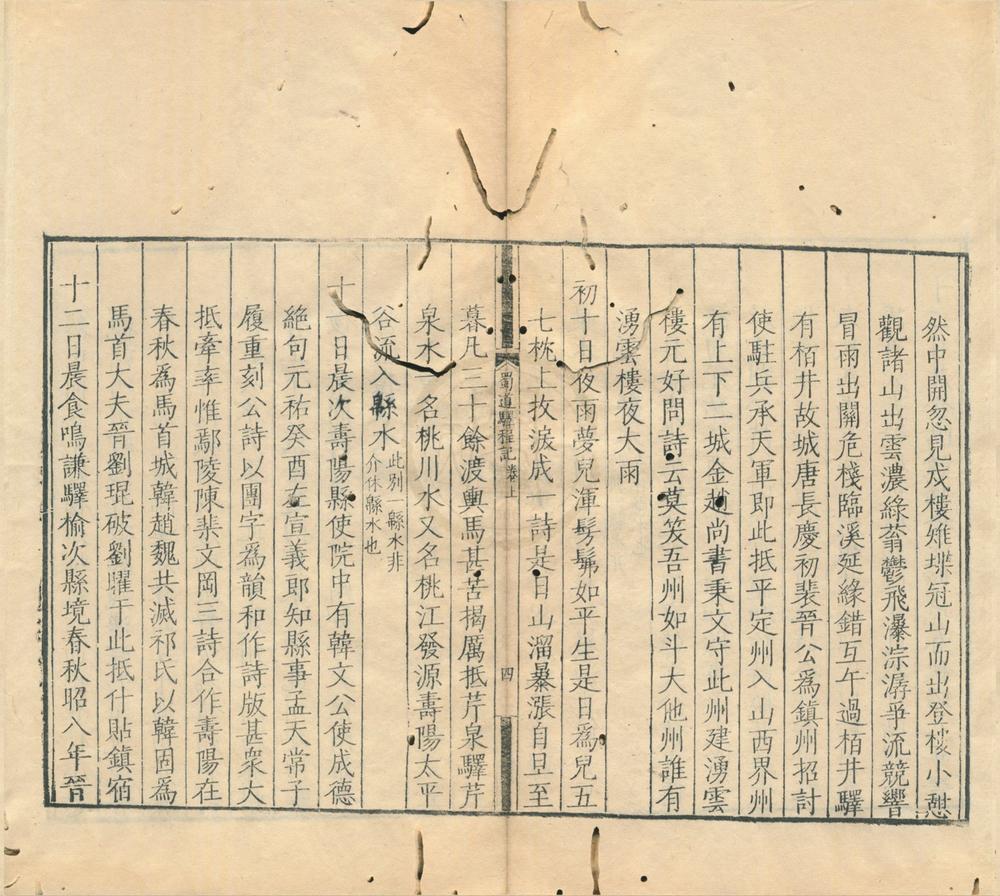 然中開忽見戍樓雉堞冠山而出登樓小憇
觀諸山出雲濃綠蓊鬱飛瀑淙潺爭流競響
冒雨出關危棧臨溪延緣錯互午過栢井驛
有栢井故城唐長慶初裴晉公爲鎮州招討
使駐兵承天軍即此抵平定州入山西界州
有上下二城金趙尚書秉文守此州建湧雲
樓元好問詩云莫笑吾州如斗大他州誰有
湧雲樓夜大雨
初十日夜雨夢兒渾髣髴如平生是日爲兒五
七枕上抆淚成一詩是日山溜暴漲自旦至
蜀道驛程記 卷上 四
暮凡三十餘渡輿馬甚苦揭厲抵芹泉驛芹
泉水一名桃川水又名桃江發源壽陽太平
谷流入緜水此別一緜水非
介休緜水也
十一日晨次壽陽縣使院中有韓文公使成德
絶句元祐癸酉左宣義郎知縣事孟天常子
履重刻公詩以團字爲韻和作詩版甚衆大
抵牽率惟鄢陵陳棐文岡三詩合作壽陽在
春秋爲馬首城韓趙魏共滅祁氏以韓固爲
馬首大夫晉劉琨破劉曜于此抵什貼鎮宿
十二日晨食鳴謙驛榆次縣境春秋昭八年晉